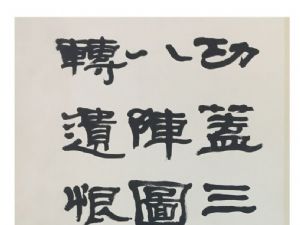 功蓋三
八陣圖
轉遺恨